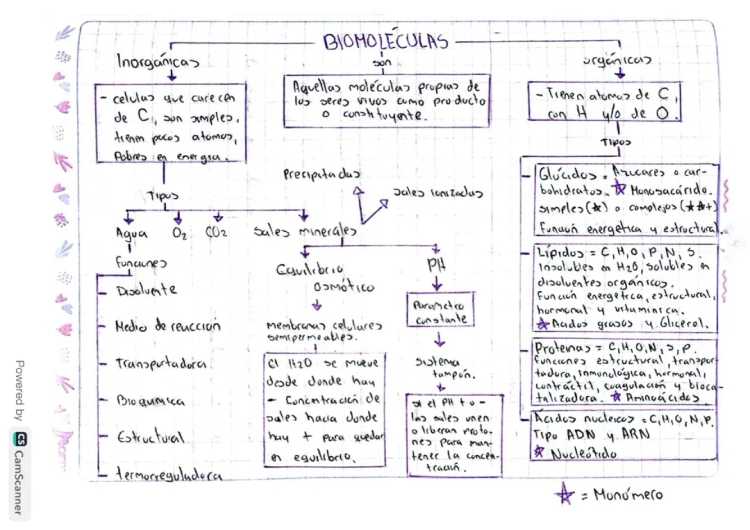 BIOMOLÉCULAS
Inorgánicas
son
orgánicas
- celulas que carecen
de C, son simples,
tienen pocos atomos,
Pobres en energía.
Aquellas moléculas propias de
los seres vivos como producto
o constituyente.
- Tienen atomos de C,
con H y/o de O.
Tipos
Agua
O₂
CO₂
Sales minerales
Precipitadas
Sales ionizadas
Funciones
- Disolvente
- Medio de reacción
- Transportadora
- Bioquímica
- Estructural
- termorreguladora
Equilibrio
Osmótico
membranas celulares
semipermeables.
El H2O se mueve
desde donde hay
- Concentración de
sales hacia donde
hay + para quedar
en equilibrio.
PH
Parametro
constante
Sistema
tampón.
si el PH + o -
las sales unen
o liberan proto-
nes para man-
tener la concen-
tración.
Tipos
Glúcidos = Azucares o car-
bohidratos. ☆ Monosacárido.
simples (☆) o complejos (☆☆+)
Función energética y estructural.
Lípidos = C, H, O, P, N, S.
Insolubles en H2O, solubles en
disolventes orgánicos.
Función energética, estructural,
hormonal y vitamínica.
☆ Acidos grasos y Glicerol.
Proteinas = C, H, O, N, S, P.
funciones estructural, transpor-
tadora, inmunológica, hormonal,
contráctil, coagulación y bioca-
talizadora. ☆ Aminoácidos
Acidos nucleicos = C, H, O, N, P.
Tipo ADN y ARN
☆ Nucleótido
☆ = Monómero
Powered by CS CamScanner